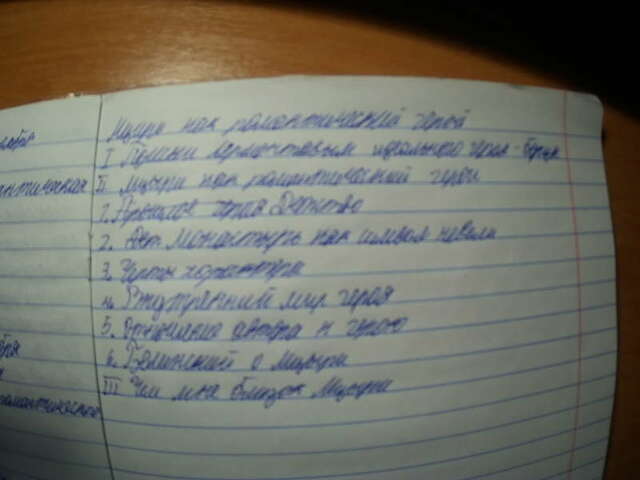 Мцыри как романтический герой
I Поиски Лермонтовым идеального героя-борца
II Мцыри как романтический герой
1. Прошлое героя Детство
2. монастырь как символ неволи
3. Черты характера
4. Внутренний мир героя
5. Отношение автора к герою
6. Белинский о Мцыри
III Чем мне близок Мцыри
антическая
романтического